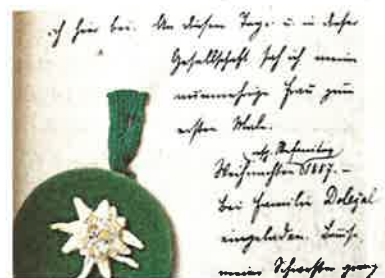 ich hier bei. An diesem Tage u. in dieser
Gesellschaft sah ich meine
nunmehrige Frau zum
ersten Male.
resp. Stefanitag
Weihnachten 1887. –
Bei Familie Dolezal
eingeladen.
meine Schwester ging